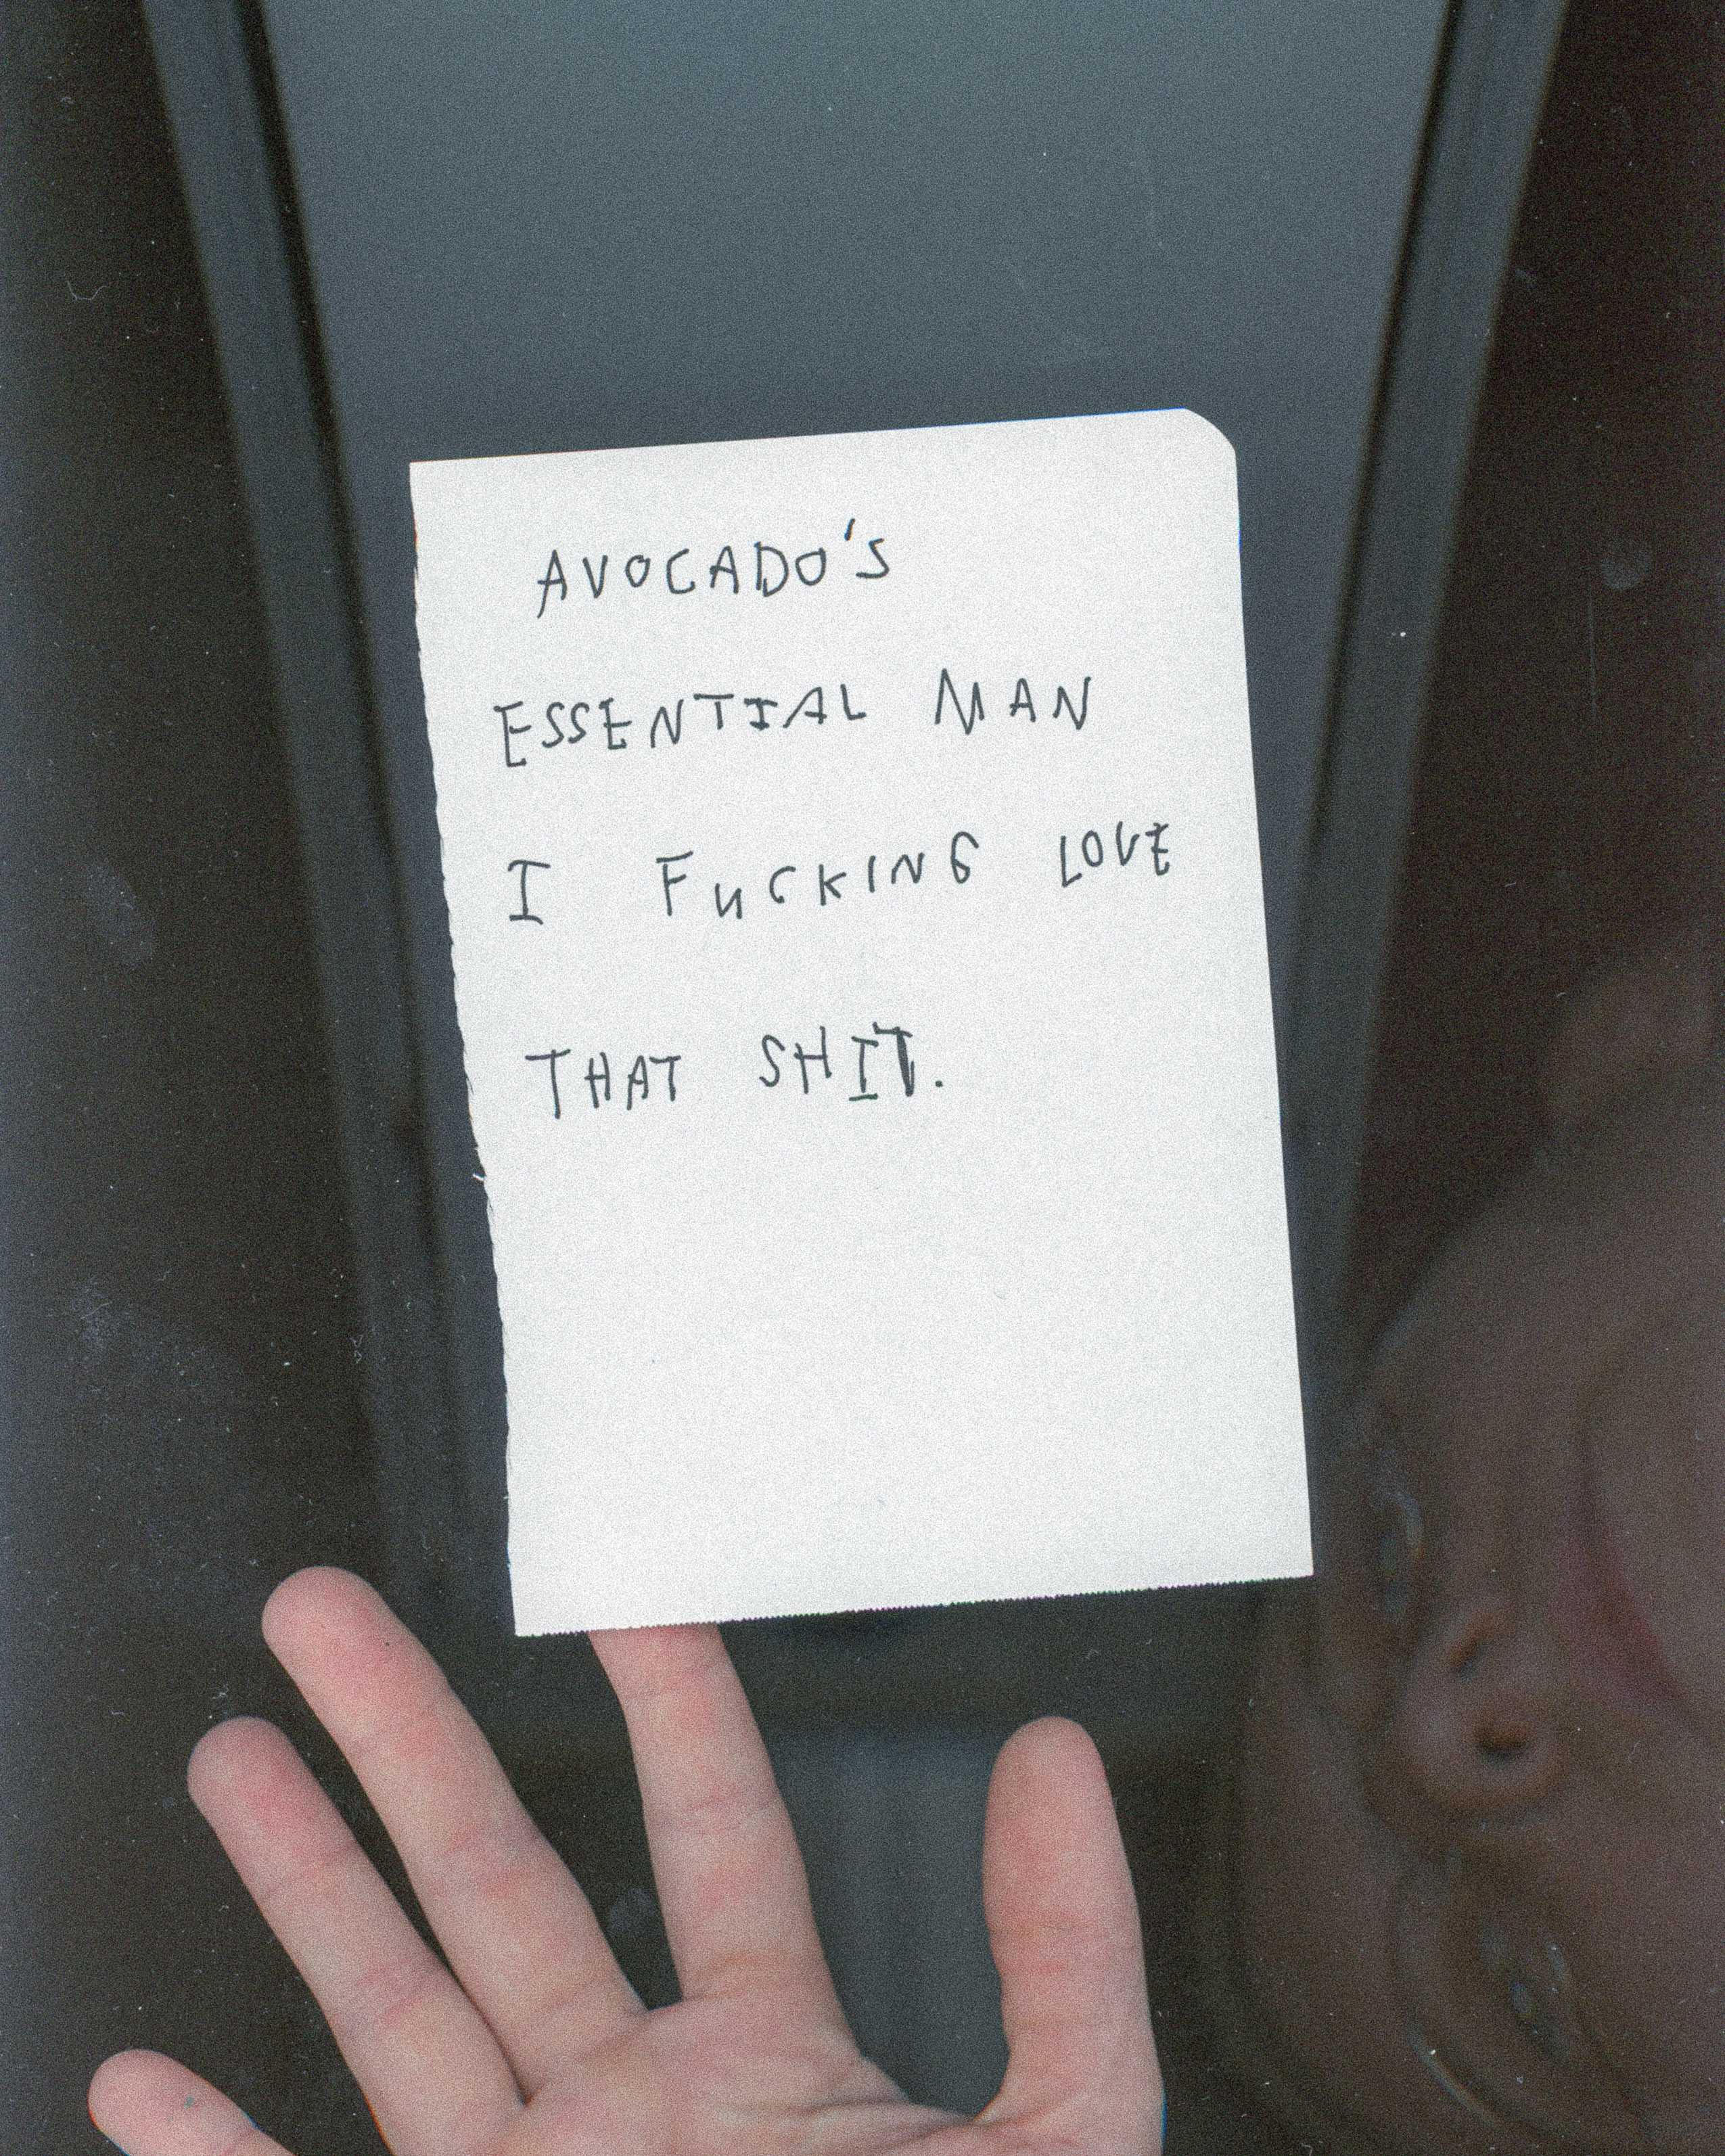 AVOCADO'S
ESSENTIAL MAN
I FUCKING LOVE
THAT SHIT.